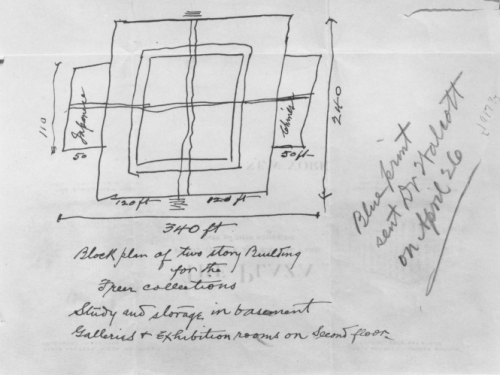 110
Japanese
50
Chinese
50 ft
240
120 ft
120 ft
340 ft
Block plan of two story Building
for the
Freer collections
Study and storage in basement
Galleries & Exhibition rooms on Second floor.
Blue print
sent Dr Walcott
on April 26